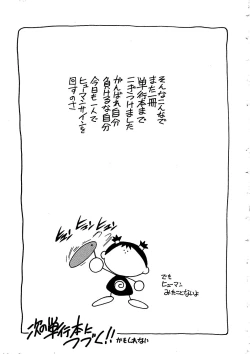 そんなこんなで
また一冊
単行本まで
こぎつけました
がんばれ自分
負けるな自分
今日も一人で
ヒューマンサインを
回すのさ
ヒュン ヒュン ヒュン
でも
ヒューマン
みたことないよ
次の単行本に
つづく!!
かもしれない